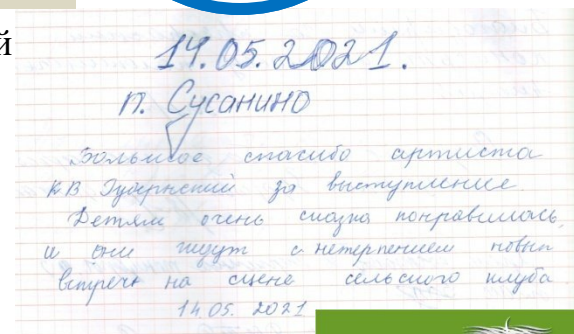 й
14.05.2021.
п. Сусанино
Большое спасибо артиста
КВ Губернский за выступление.
Детям очень сказка понравилась,
и они ждут с нетерпением новых
встреч на сцене сельского клуба
14.05.2021